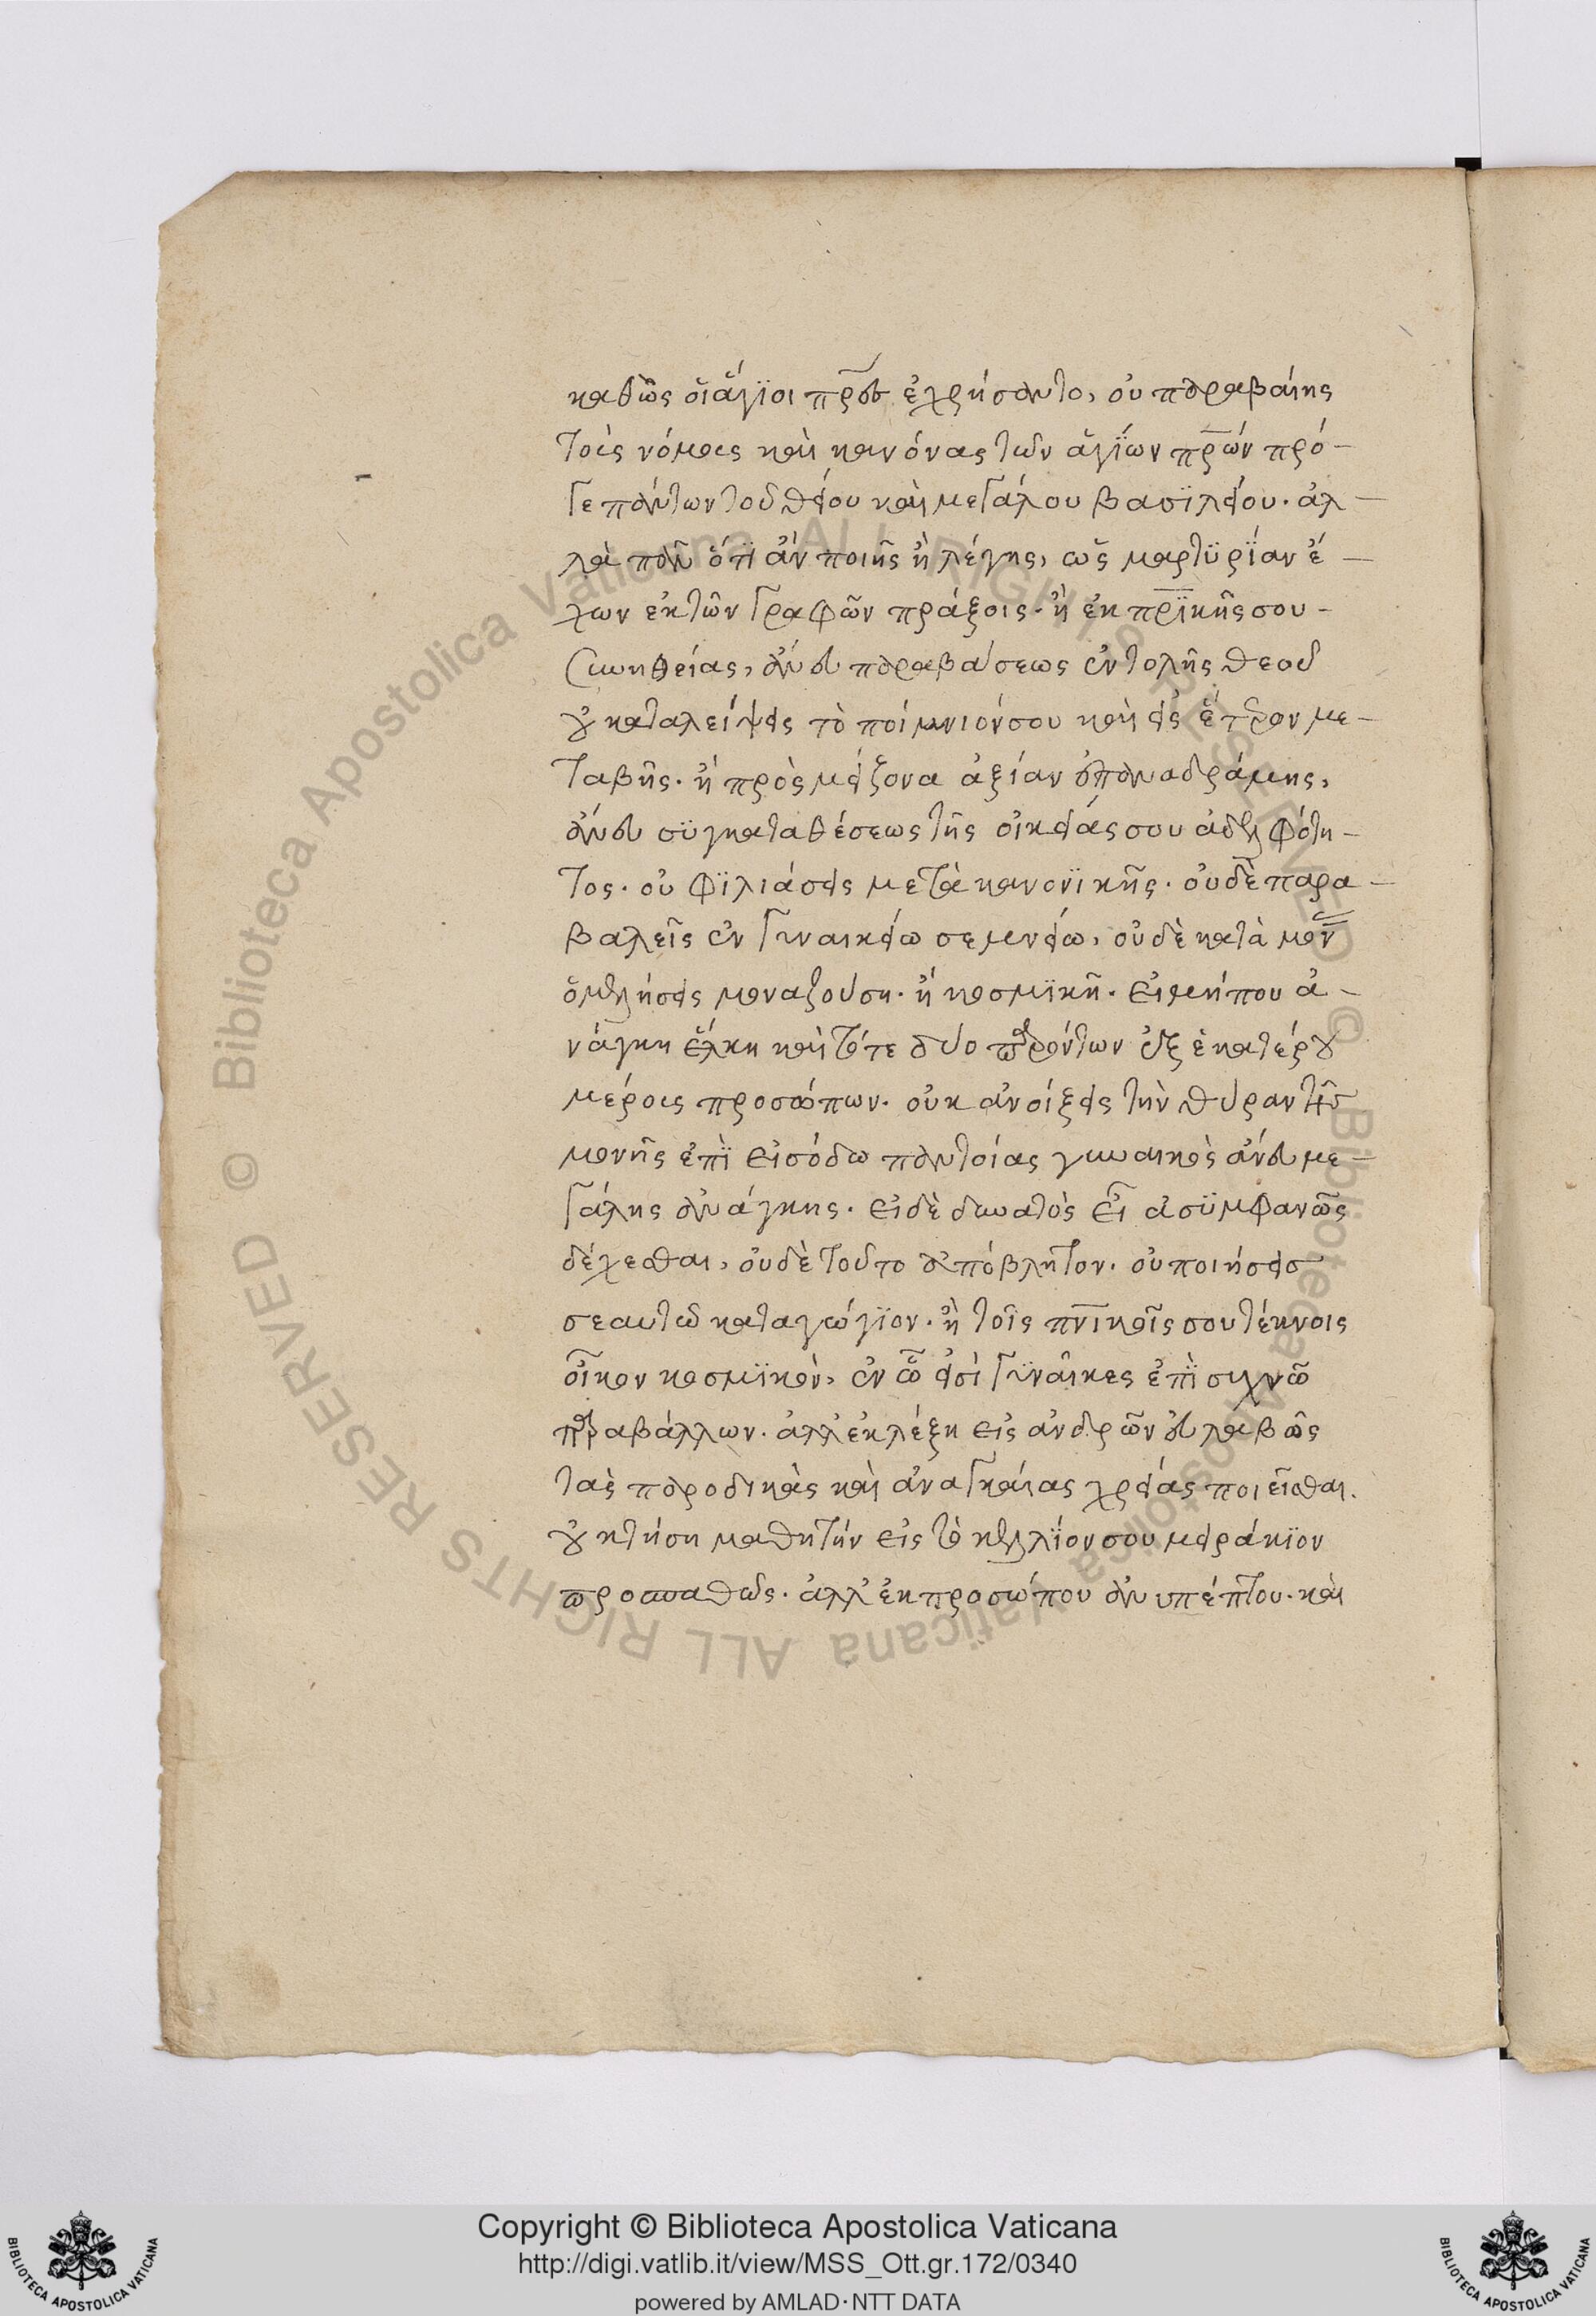 καθὼς οἱ ἅγϊοι πρ̅ες ἐχρήσαντο, οὐ παραβαίης
τοὺς νόμους καὶ κανόνας τῶν ἁγΐων πρ̅ων πρό-
γε πάντων τοῦ θείου καὶ μεγάλου βασϊλείου. ἀλ-
λὰ πᾶν ὅτϊ ἂν ποιῆς ἢ λέγης, ὡς μαρτϋρΐαν ἔ-
χων ἐκ τῶν γραφῶν πράξοις. ἢ ἐκ πρ̅ϊκῆς σου
συνηθείας, ἄνευ παραβάσεως ἐντολῆς θεοῦ
οὐ καταλείψεις τὸ ποίμνιόν σου καὶ εἰς ἕτερον με-
ταβῆς. ἢ πρὸς μείζονα ἀξίαν ἐπαναδράμης,
ἄνευ σϋγκαταθέσεως τῆς οἰκείας σου ἀδελφότη-
τος. οὐ φϊλιάσεις μετὰ κανονϊκῆς. οὐδὲ παρα-
βαλεῖς ἐν γυναικείω σεμνείω, οὐδὲ κατὰ μον̅
ὁμιλήσεις μοναζούση. ἢ κοσμϊκῆ. εἰ μήπου ἀ-
νάγκη ἕλκη καὶ τότε δύο παρόντων ἐξ ἑκατέρου
μέρους προσώπων. οὐκ ἀνοίξεις τὴν θύραν τῆς
μονῆς ἐπῒ εἰσόδω παντοίας γυναικὸς ἄνευ με-
γάλης ἀνάγκης. εἰ δὲ δυνατὸς εἶ ἀσϋμφανῶς
δέχεσθαι, οὐδὲ τοῦτο ἀπόβλητον. οὐ ποιήσεις
σεαυτῶ καταγώγϊον. ἢ τοῖς πν̅ικοῖς σου τέκνοις
οἶκον κοσμϊκὸν, ἐν ὧ εἰσὶ γϋναῖκες ἐπῒ συχνῶ
παραβάλλων. ἀλλ' ἐκλέξη εἰς ἀνδρῶν εὐλαβῶς
τὰς παροδικὰς καὶ ἀναγκαίας χρείας ποιεῖσθαι.
οὐ κτήση μαθητήν εἰς τὸ κελλΐον σου μειράκϊον
προσπαθῶς. ἀλλ' ἐκ προσώπου ἀνυπέπτου. καὶ
Copyright © Biblioteca Apostolica Vaticana
http://digi.vatlib.it/view/MSS_Ott.gr.172/0340
powered by AMLAD·NTT DATA